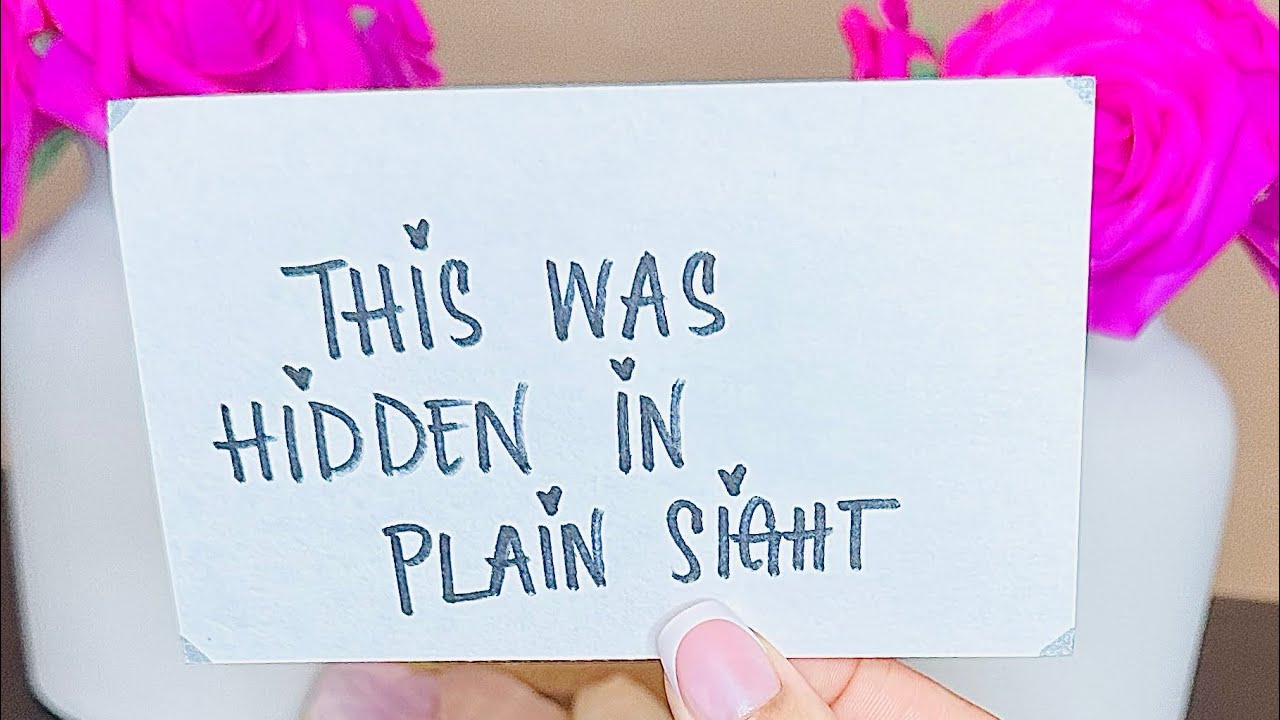 THiS WAS
HiDDEN iN
PLAiN SiGHT